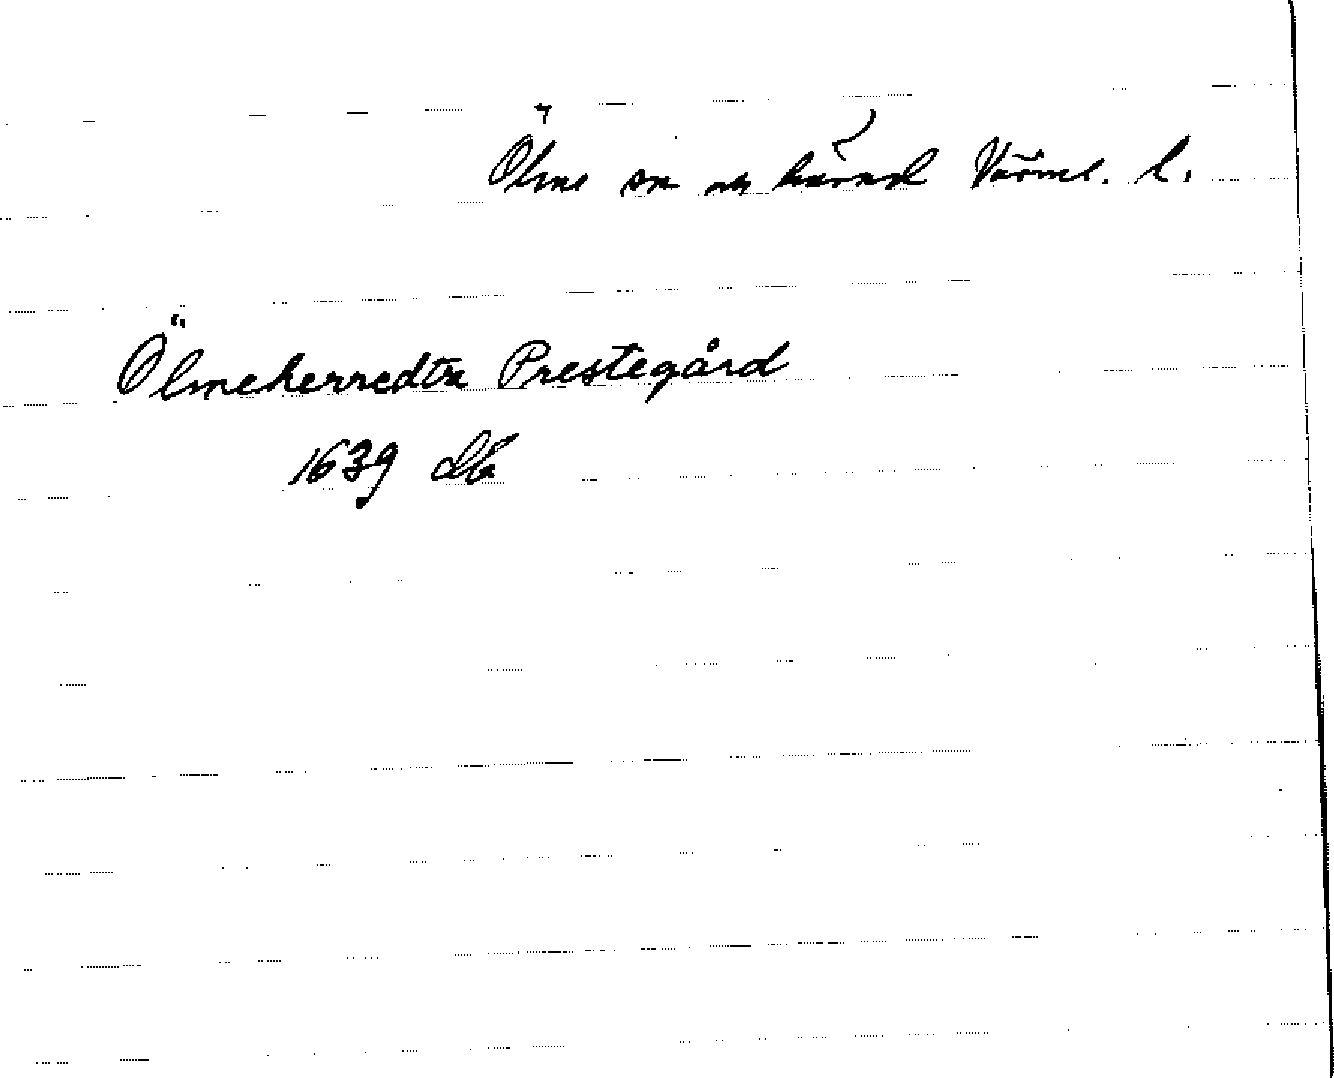 Ölme sn o härad Värml. l.
Ölmeherredtz Prestegård
1639 db